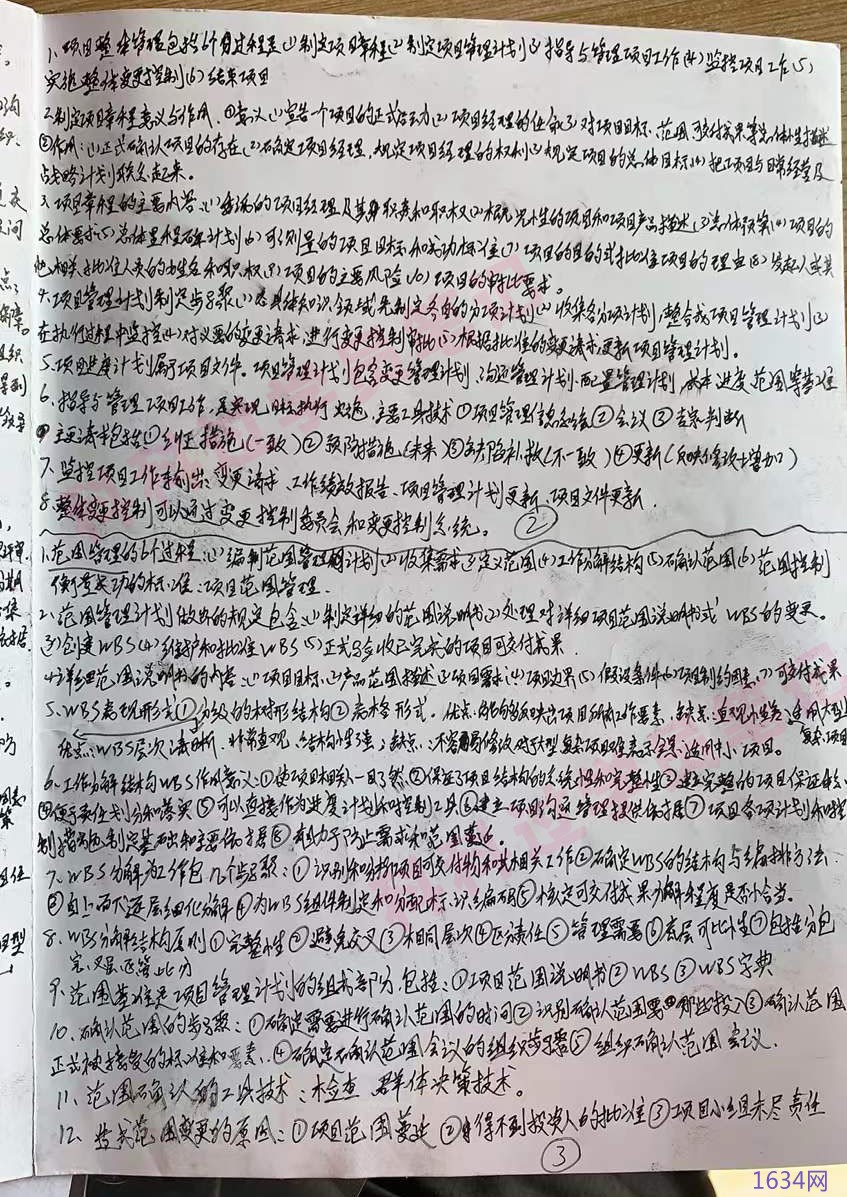 1、项目整体管理包括6个过程是(1)制定项目章程(2)制定项目管理计划(3)指导与管理项目工作(4)监控项目工作(5)
实施整体变更控制(6)结束项目
2、制定项目章程意义与作用。①意义(1)宣告一个项目的正式启动(2)项目经理的任命(3)对项目目标、范围可交付成果等总体性描述
②作用:(1)正式确认项目的存在(2)确定项目经理,规定项目经理的权利(3)规定项目的总体目标(4)把项目与日常经营及
战略计划联系起来。
3、项目章程的主要内容:(1)委派的项目经理及其职责和职权(2)概况性的项目和项目产品描述(3)总体预算(4)项目的
总体要求(5)总体里程碑计划(6)可测量的项目目标和成功标准(7)项目的目的或批准项目的理由(8)发起人或其
他相关批准人员的姓名和职权(9)项目的主要风险(10)项目的审批要求。
4、项目管理计划制定步骤(1)各具体知识领域先制定各自的分项计划(2)收集各分项计划,整合成项目管理计划(3)
在执行过程中监控(4)对必要的变更请求,进行变更控制审批(5)根据批准的变更请求更新项目管理计划。
5、项目进度计划属于项目文件。项目管理计划包含变更管理计划、沟通管理计划、配置管理计划、成本进度范围等基准
6、指导与管理项目工作,是实现目标执行火炮,主要工具技术①项目管理信息系统②会议③专家判断
主要请求包括①纠正措施(一致)②预防措施(未来)③缺陷补救(不一致)④更新(反映修改/增加)
7、监控项目工作输出:变更请求、工作绩效报告、项目管理计划更新、项目文件更新
8、整体变更控制可以通过变更控制委员会和变更控制系统。
②
1、范围管理的6个过程:(1)编制范围管理计划(2)收集需求(3)定义范围(4)工作分解结构(5)确认范围(6)范围控制
衡量成功的标准:项目范围管理.
2、范围管理计划做出的规定包含(1)制定详细的范围说明书(2)处理对详细项目范围说明书或WBS的变更。
(3)创建WBS(4)维护和批准WBS(5)正式验收已完成的项目可交付成果.
4、详细范围说明书的内容:(1)项目目标(2)产品范围描述(3)项目需求(4)项目边界(5)假设条件(6)项目制约因素(7)可交付成果
5、WBS表现形式①分级的树形结构②表格形式。优点:能够反映出项目所有工作要素,缺点:直观性差,适用大型
复杂项目
优点:WBS层次清晰、非常直观、结构性强;缺点:不容易修改,对大型复杂项目难表示全景,适用中小项目。
6、工作分解结构WBS作用意义:①使项目相关人一目了然②保证了项目结构的系统性和完整性③建立完整的项目保证体系
④便于责任划分和落实⑤可以直接作为进度计划和控制工具⑥建立项目沟通管理提供依据⑦项目各项计划和控
制措施制定基础和主要依据⑧有助于防止需求和范围蔓延。
7、WBS分解为工作包几个步骤:①识别和分析项目可交付物和其相关工作②确定WBS的结构与编排方法.
③自上而下逐层细化分解④为WBS组件制定和分配标识编码⑤核定可交付成果分解程度是否恰当。
8、WBS分解结构原则①完整性②避免交叉③相同层次④区分责任⑤管理需要⑥底层可比性⑦包括分包
9、范围基准是项目管理计划的组成部分,包括:①项目范围说明书②WBS③WBS字典
10、确认范围的步骤:①确定需要进行确认范围的时间②识别确认范围需要哪些投入③确认范围
正式被接受的标准和要素、④确定确认范围会议的组织步骤⑤组织确认范围会议.
11、范围确认的工具技术:检查 群体决策技术。
12、造成范围变更的原因:①项目范围蔓延②得不到投资人的批准③项目小组未尽责任
③
1634网